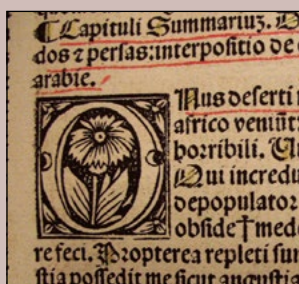 ¶ Capituli Summariuz. D
dos ⁊ persas: interpositio de
arabie.
Onus deserti
africo veniūt
horribili. Ui
Qui incredu
depopulator
obside † mede
refeci. Propterea repleti sun
stia possedit me sicut angustia